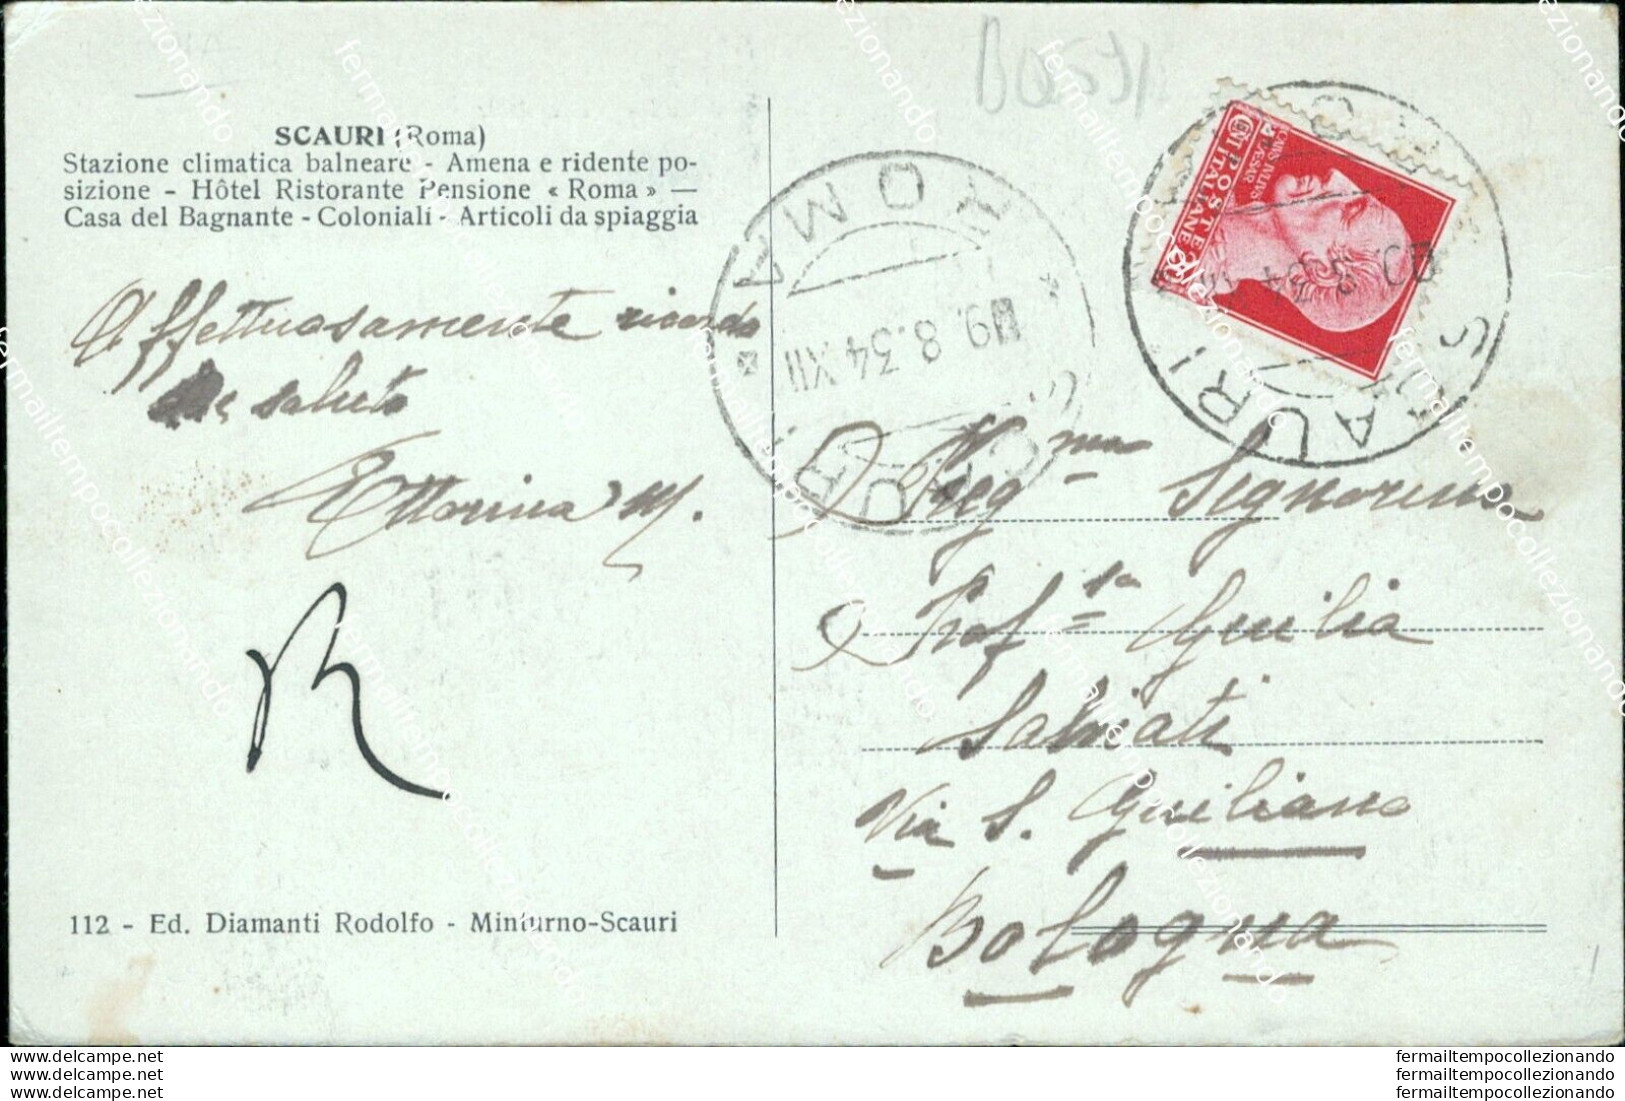 SCAURI (Roma)
Stazione climatica balneare - Amena e ridente po-
sizione - Hôtel Ristorante Pensione « Roma » —
Casa del Bagnante - Coloniali - Articoli da spiaggia
Affettuosamente ricorda
e saluta
Ettorina M.
R
112 - Ed. Diamanti Rodolfo - Minturno-Scauri
SCAURI
ROMA
9.8.34 XII
SCAURI
8.34
POSTE
ITALIANE
CAESAR
Preg.ma Signorina
Prof.ssa Giulia
Salviati
Via S. Giuliano
Bologna
www.delcampe.net
www.delcampe.net
www.delcampe.net
fermailtempocollezionando
fermailtempocollezionando
fermailtempocollezionando